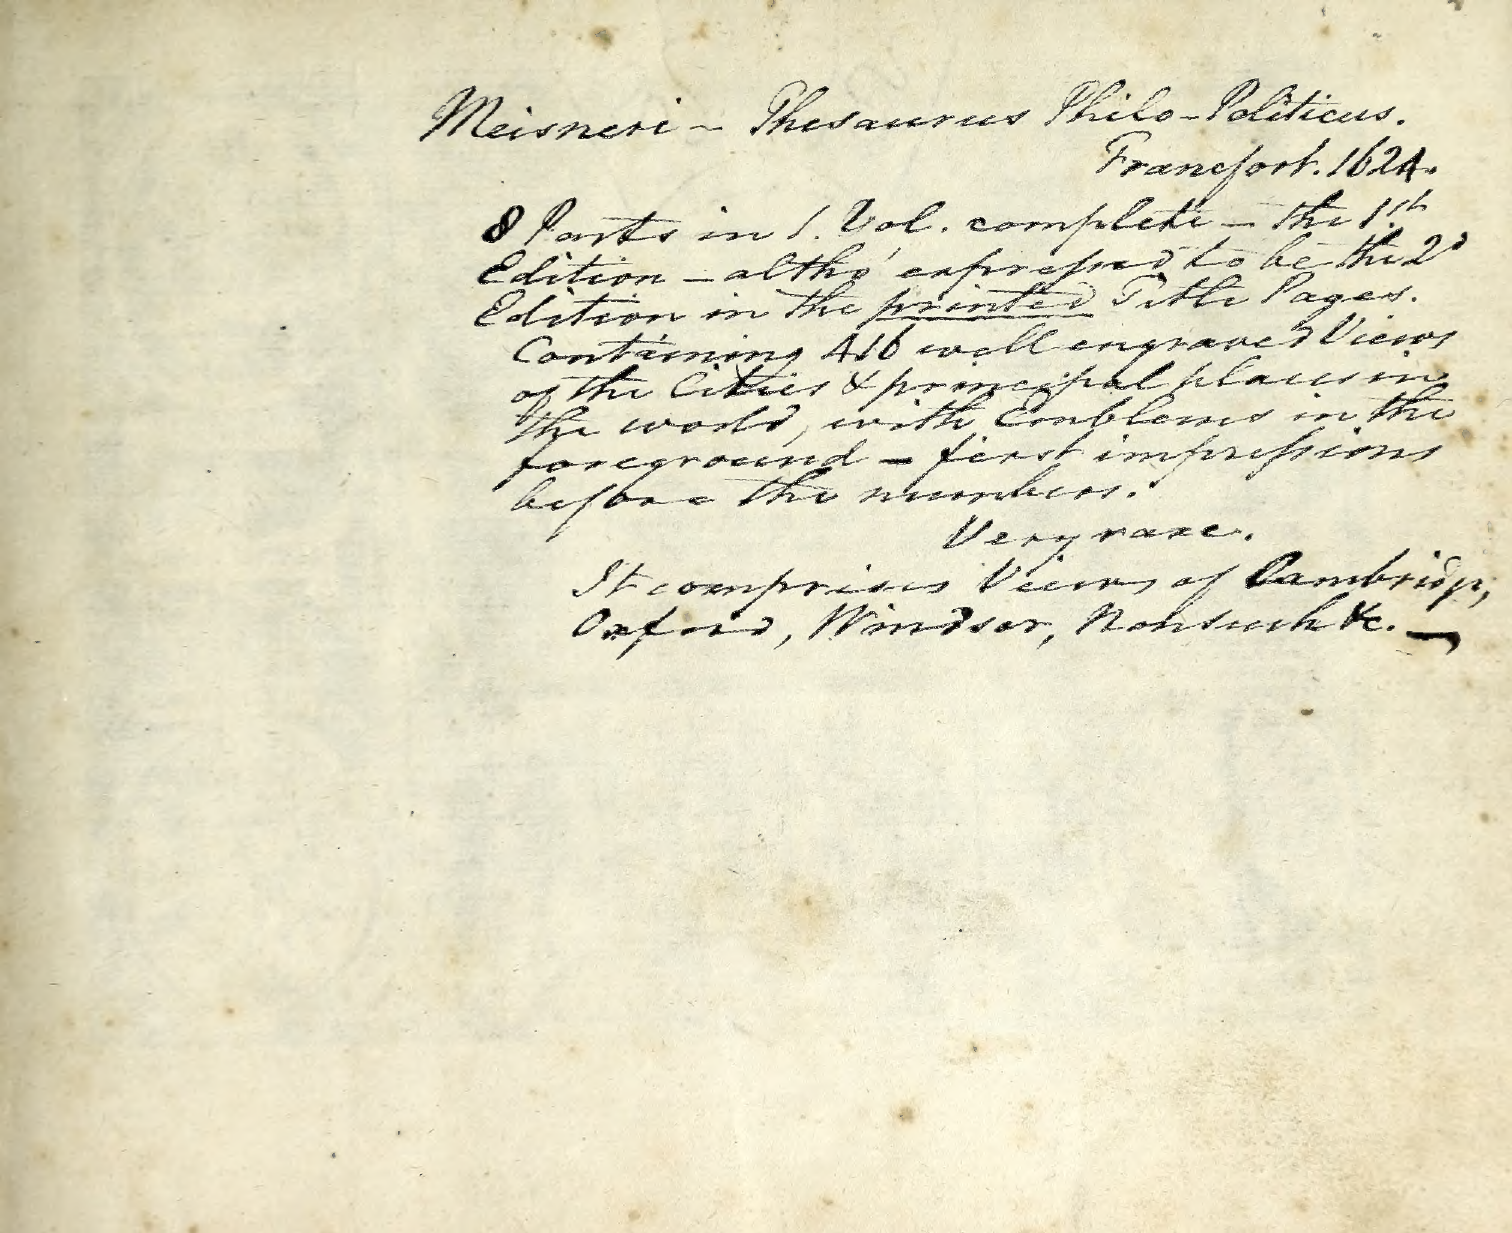 Meisneri – Thesaurus Philo-Politicus.
Francfort. 1624.
8 Parts in 1. Vol. complete – the 1.st
Edition – altho' expressed to be the 2d
Edition in the printed Title Pages.
Containing 416 well engraved Views
of the Cities & principal places in
the world, with Emblems in the
foreground – first impressions
before the numbers.
Very rare.
It comprises Views of Cambridge,
Oxford, Windsor, Nonsuch &c. –